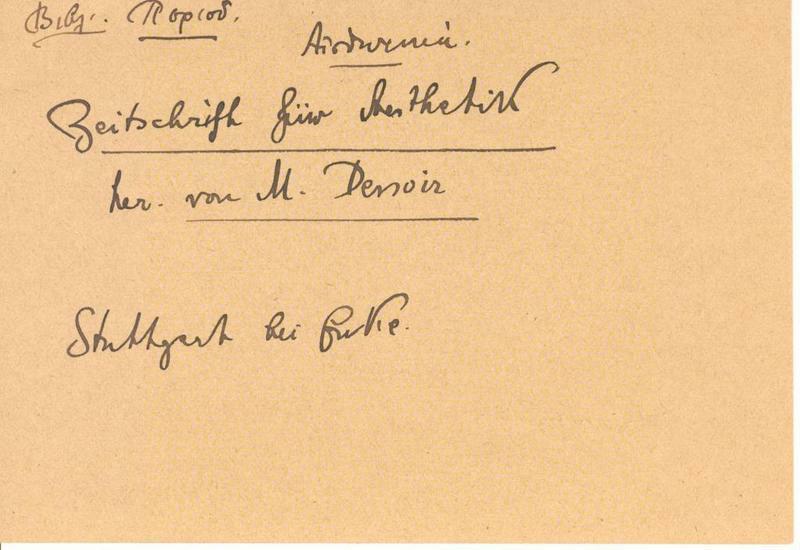 Βιβλ. Περιοδ.
Zeitschrift für Aesthetik
her. von M. Dessoir
Stuttgart bei Enke.